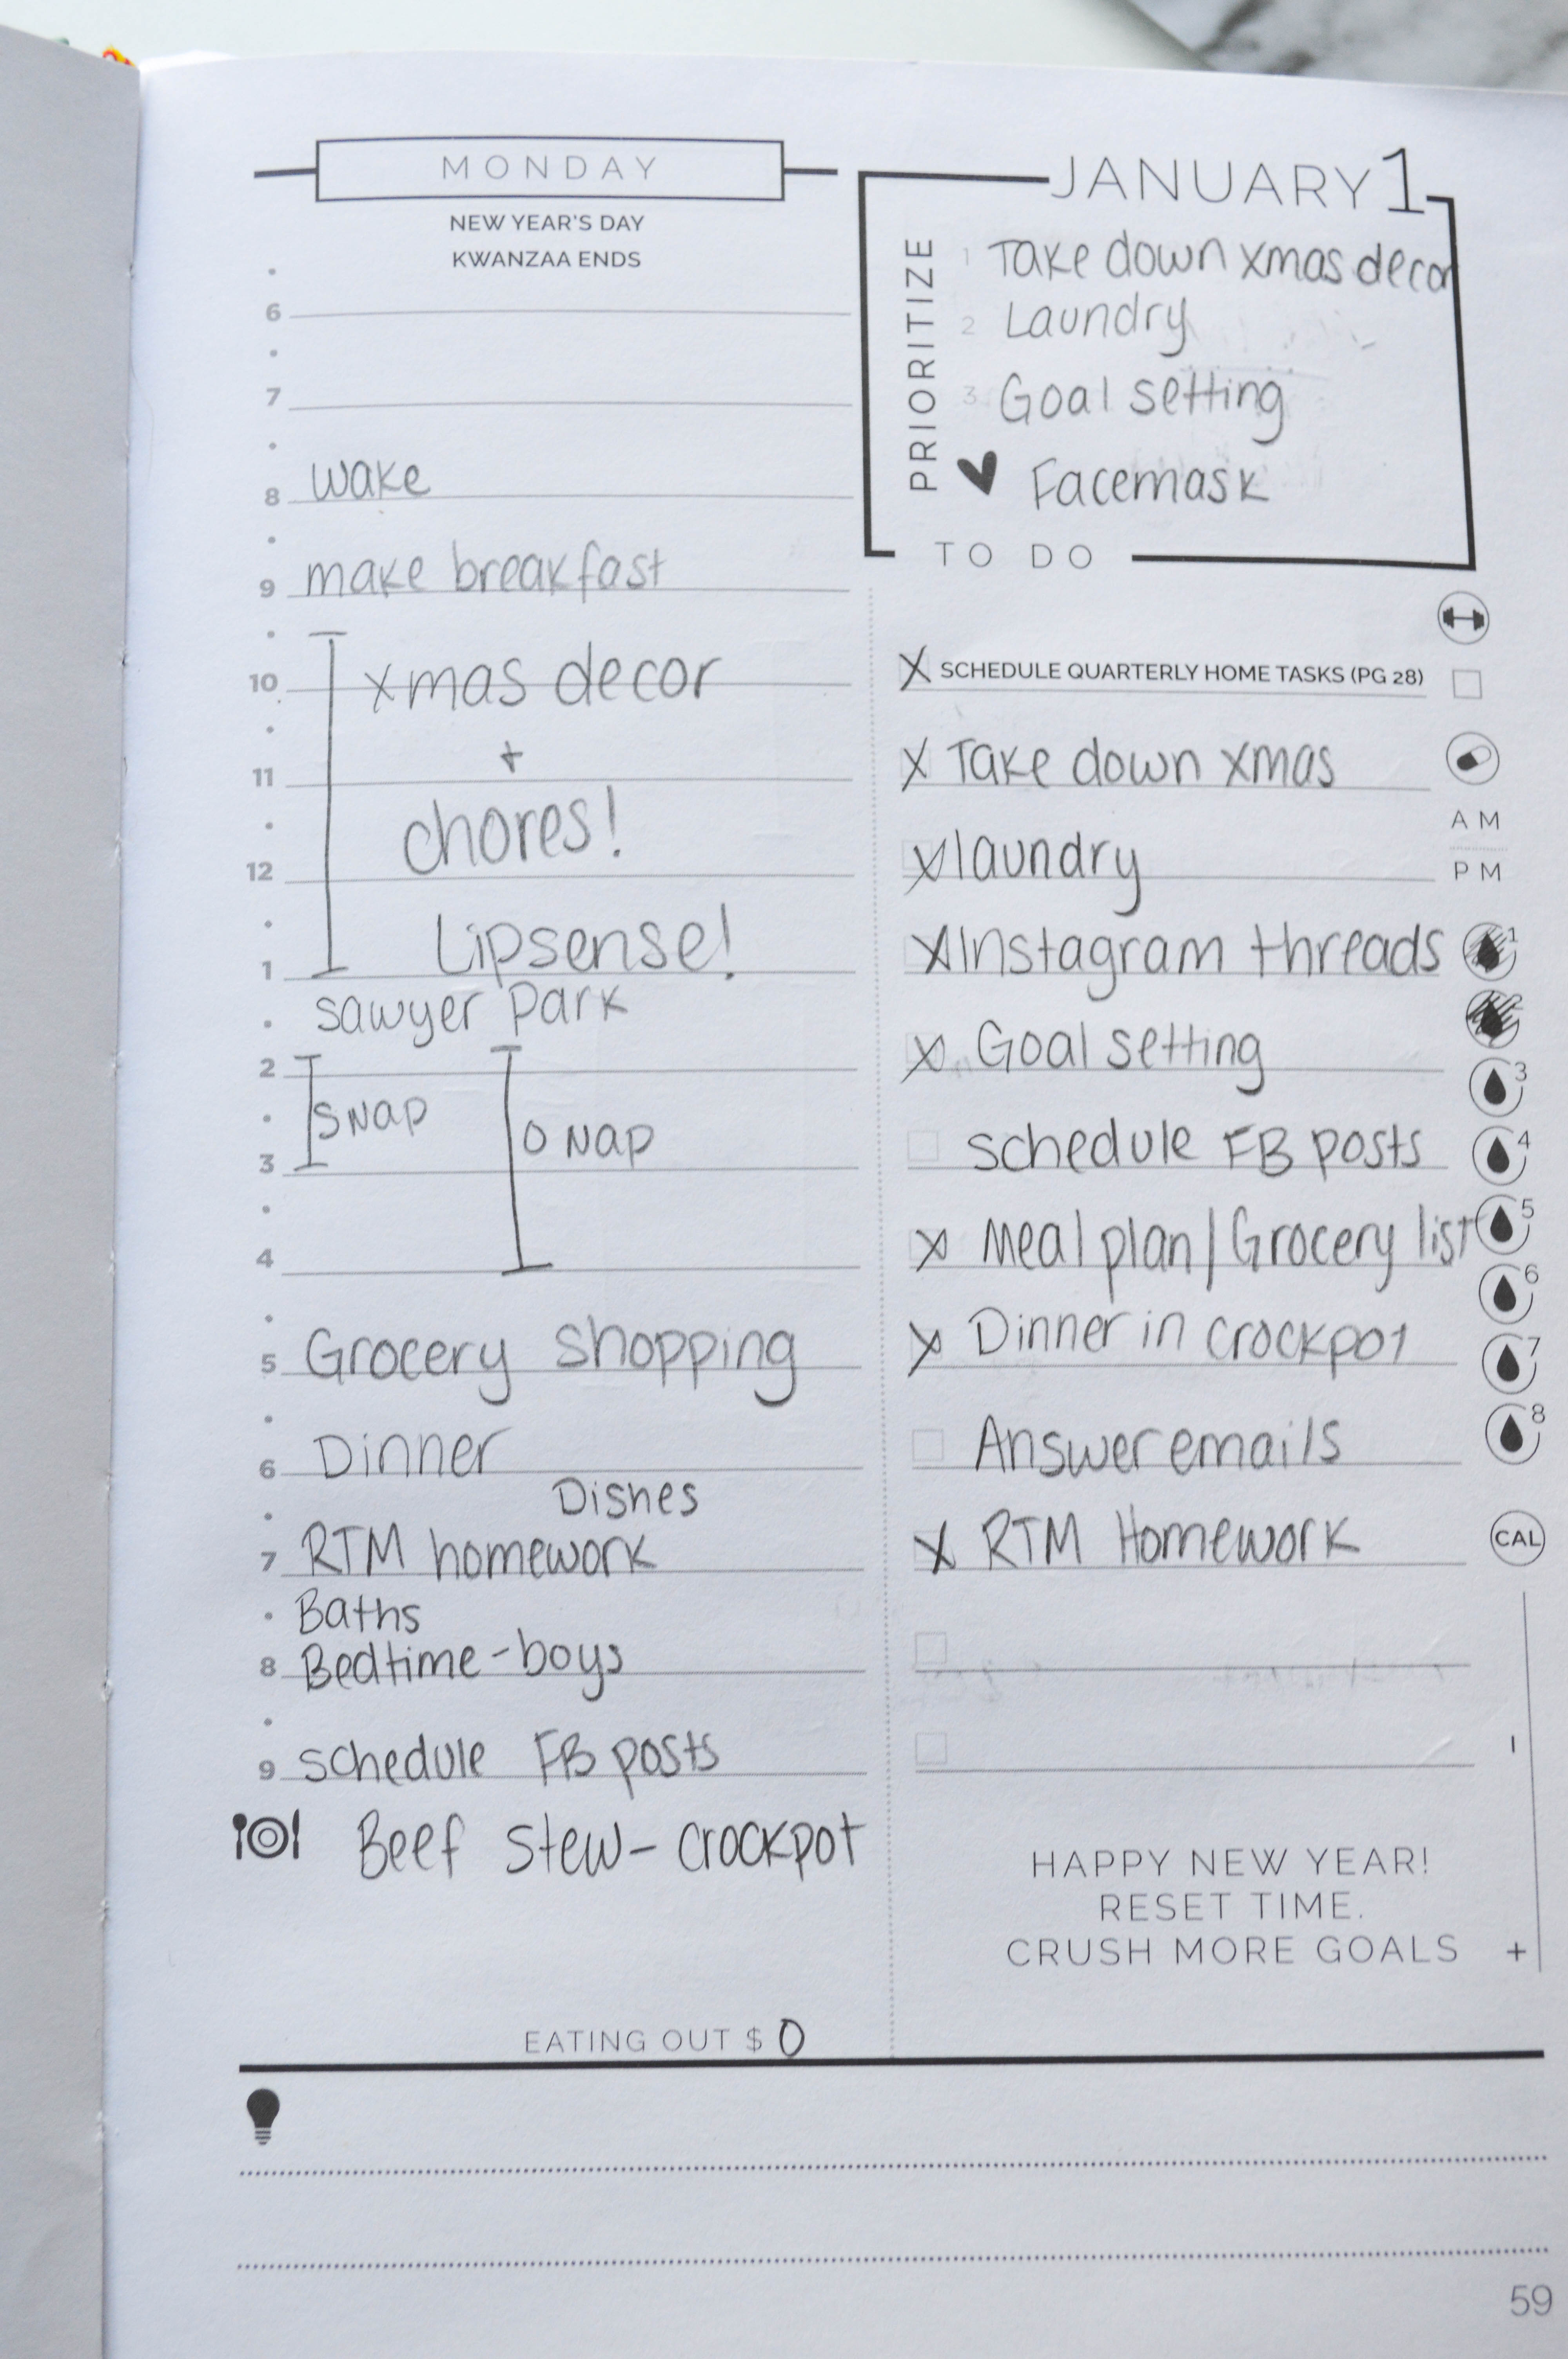 MONDAY
NEW YEAR'S DAY
KWANZAA ENDS
6
7
8 wake
9 make breakfast
10 xmas decor
+
11
chores!
12
1 Lipsense!
sawyer park
2
S Nap
O Nap
3
4
5 Grocery shopping
6 Dinner
Dishes
7 RTM homework
Baths
8 Bedtime - boys
9 schedule FB posts
Beef stew - crockpot
EATING OUT $ 0
JANUARY 1
PRIORITIZE
1 Take down xmas decor
2 Laundry
3 Goal setting
Facemask
TO DO
X SCHEDULE QUARTERLY HOME TASKS (PG 28)
X Take down xmas
X laundry
X Instagram threads
X Goal setting
schedule FB posts
X Meal plan/Grocery list
X Dinner in crockpot
Answer emails
X RTM Homework
AM
PM
1
2
3
4
5
6
7
8
CAL
-
+
HAPPY NEW YEAR!
RESET TIME.
CRUSH MORE GOALS
59